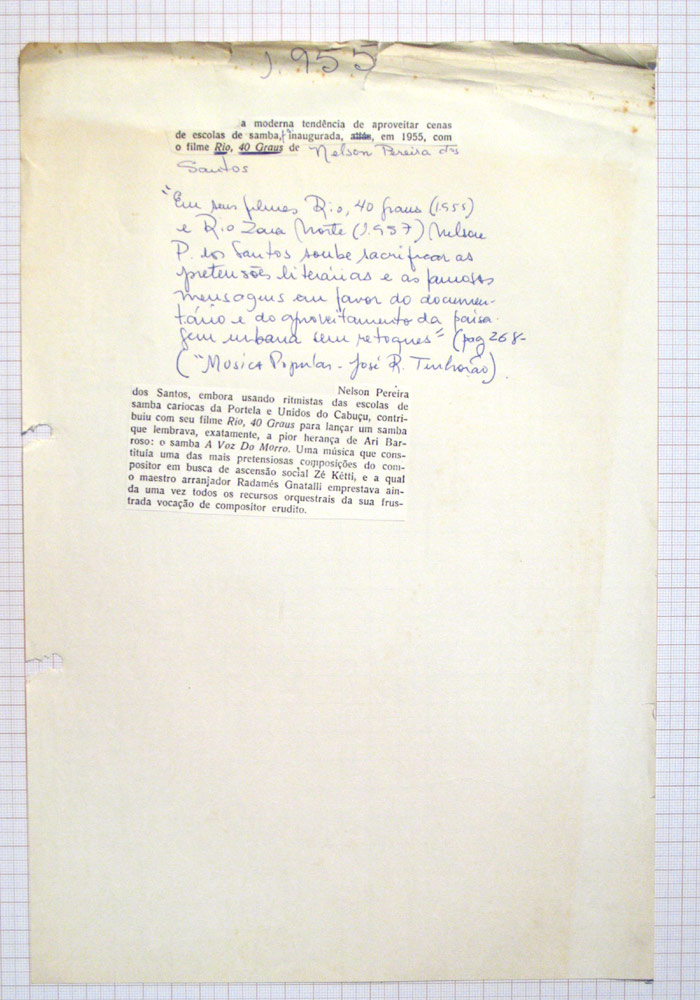 1.955
a moderna tendência de aproveitar cenas
de escolas de samba, inaugurada, aliás, em 1955, com
o filme Rio, 40 Graus de Nelson Pereira dos
Santos
"Em seus filmes Rio, 40 graus (1955)
e Rio Zona Norte (1.957) Nelson
P. dos Santos soube sacrificar as
pretensões literárias e as famosas
mensagens em favor do documen-
tário e do aproveitamento da paisa-
gem urbana sem retoques" (pag 268-
("Musica Popular - José R. Tinhorão).
Nelson Pereira
dos Santos, embora usando ritmistas das escolas de
samba cariocas da Portela e Unidos do Cabuçu, contri-
buiu com seu filme Rio, 40 Graus para lançar um samba
que lembrava, exatamente, a pior herança de Ari Bar-
roso: o samba A Voz Do Morro. Uma música que cons-
tituía uma das mais pretensiosas composições do com-
positor em busca de ascensão social Zé Kétti, e a qual
o maestro arranjador Radamés Gnatalli emprestava ain-
da uma vez todos os recursos orquestrais da sua frus-
trada vocação de compositor erudito.